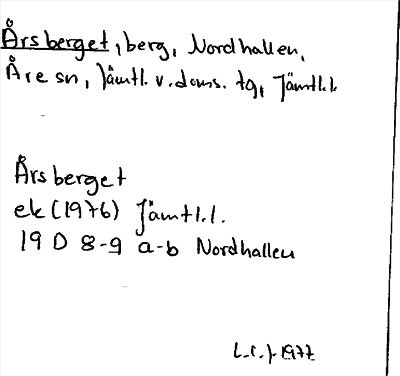 Årsberget, berg, Nordhallen,
Åre sn, Jämtl. v. doms. tg, Jämtl.l.
Årsberget
ek (1976) Jämtl.l.
19 D 8-9 a-b Nordhallen
1977